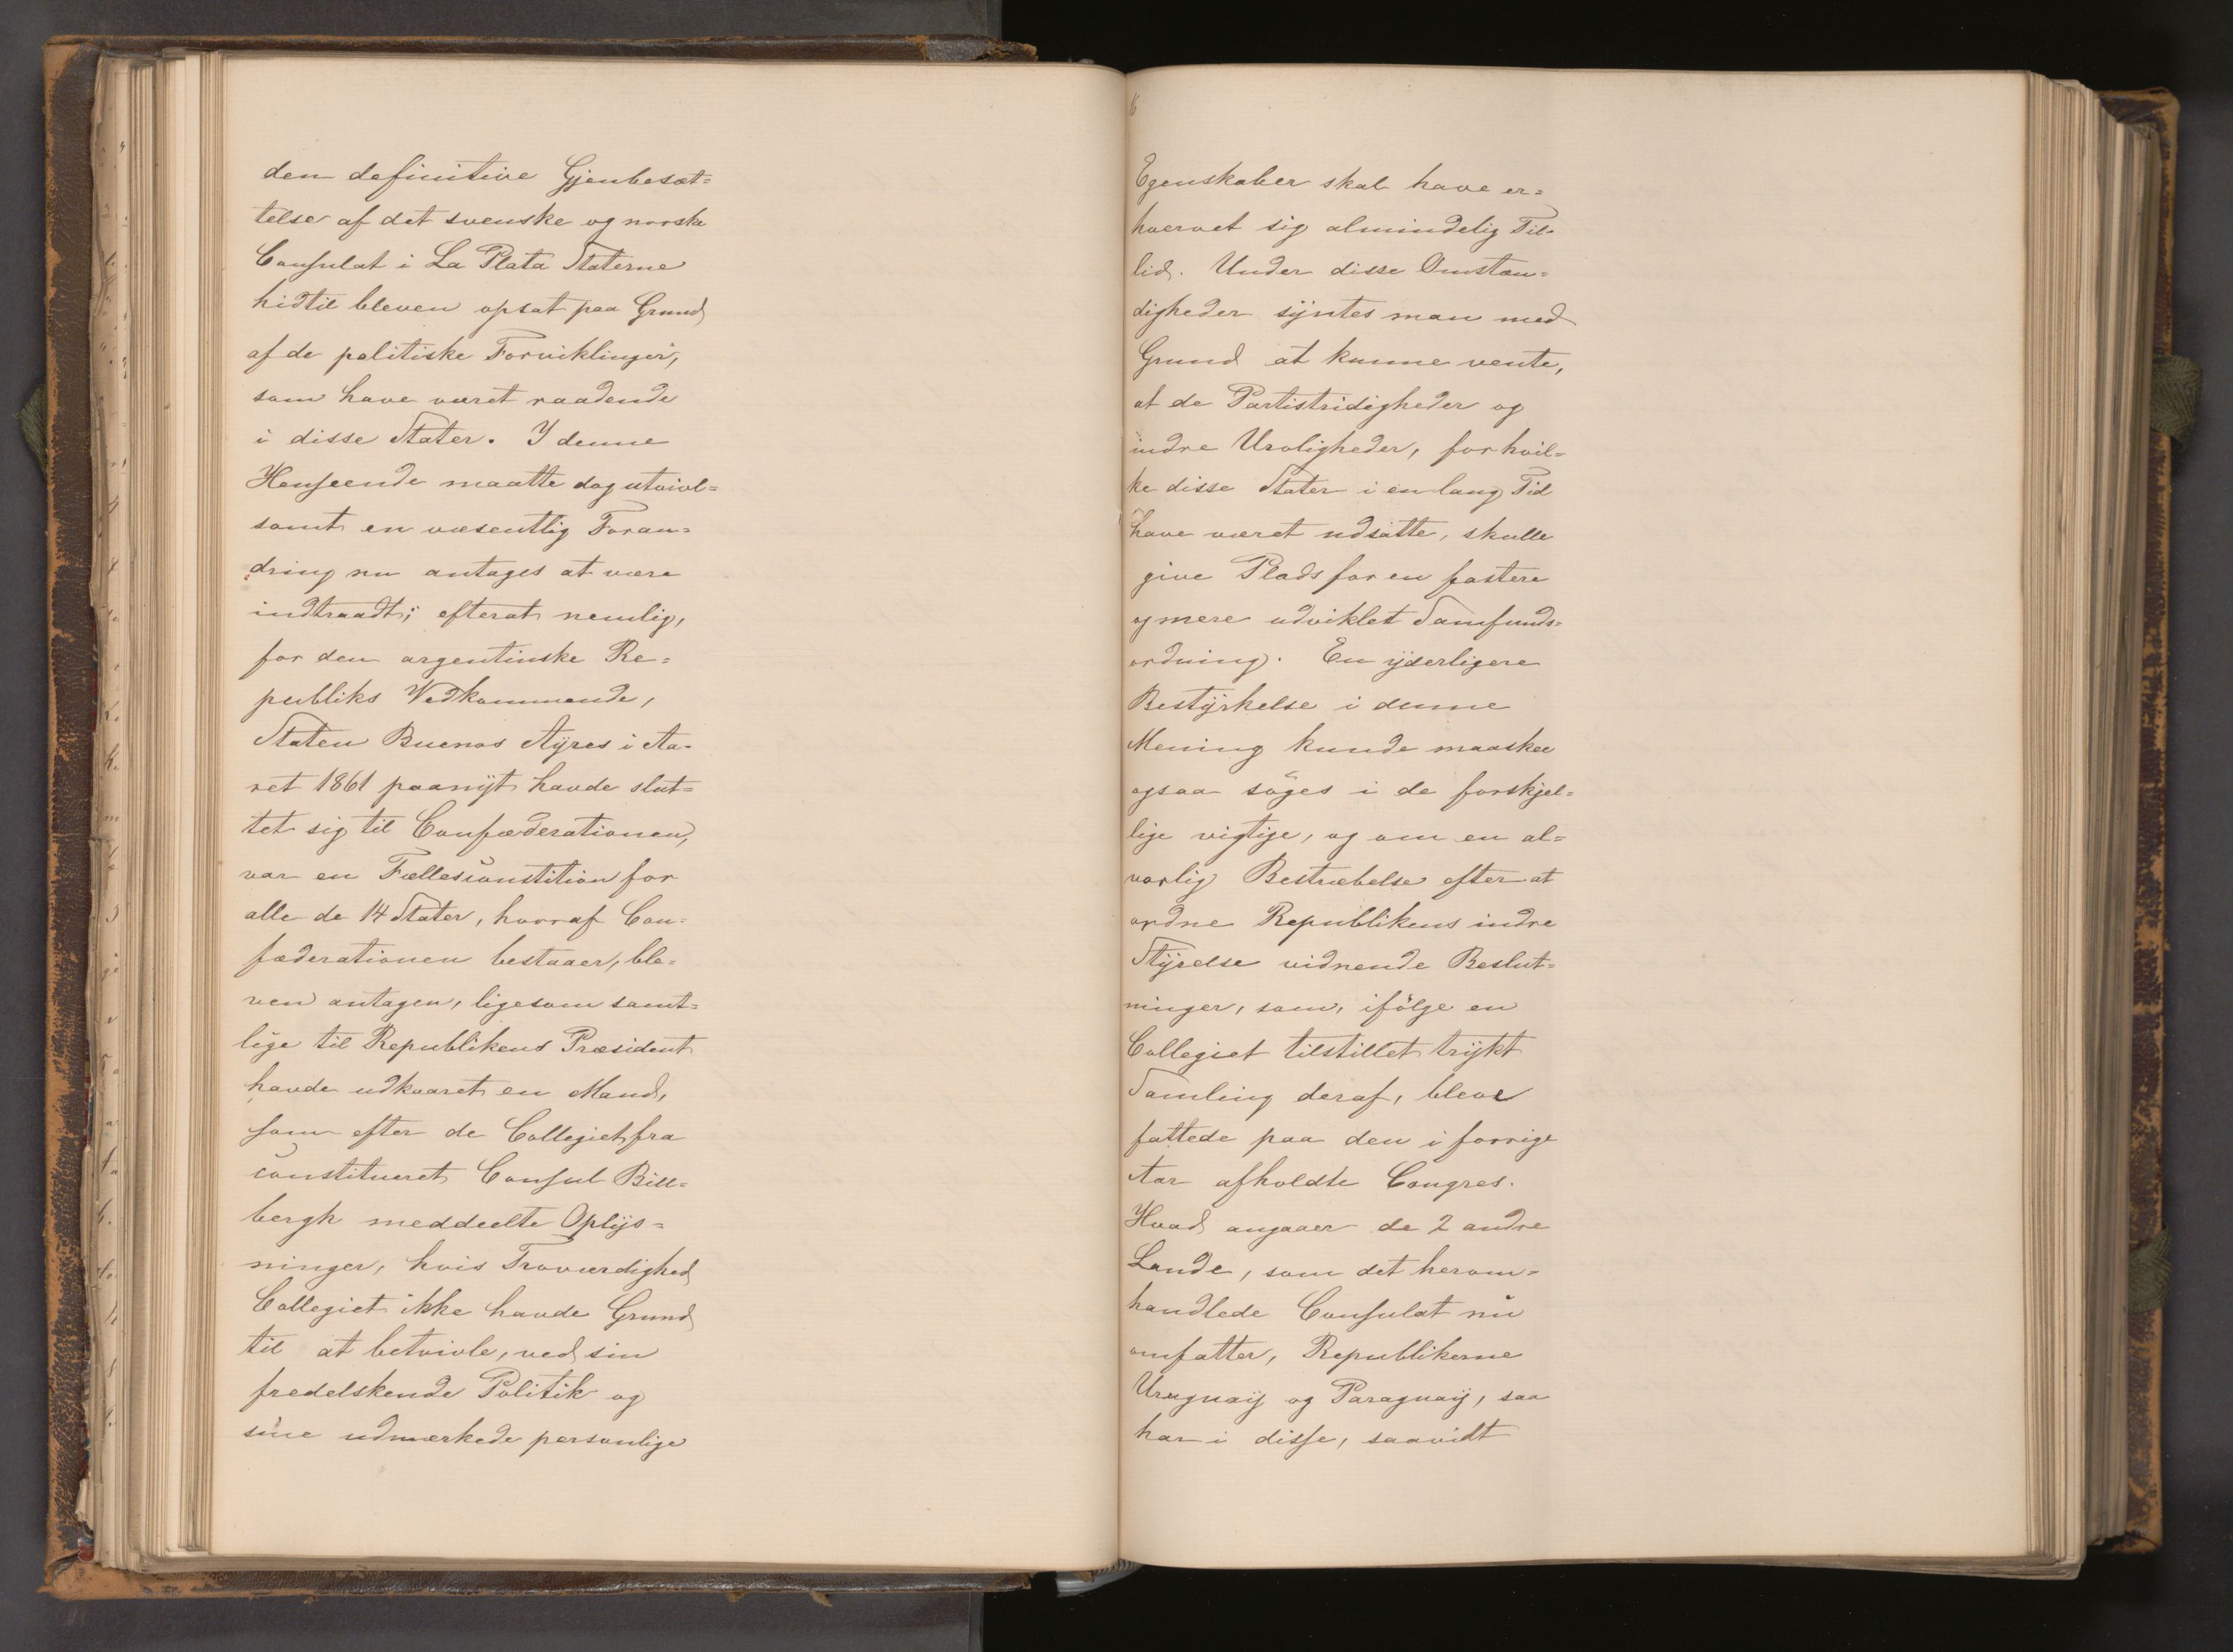 den definitive Gjenbesæt=
telse af det svenske og norske
Consulat i La Plata Staterne
hidtil bleven opsat paa Grund
af de politiske Forviklinger,
som have været raadende
i disse Stater. I denne
Henseende maatte dog utvivl=
somt en væsentlig Foran=
dring nu antages at være
indtraadt; efterat nemlig,
for den argentinske Re=
publiks Vedkommende,
Staten Buenos Ayres i Aa=
ret 1861 paanyt havde slut=
tet sig til Confæderationen,
var en Fællesconstitution for
alle de 14 Stater, hvoraf Con=
fæderationen bestaaer, ble=
ven antagen, ligesom samt=
lige til Republikens Præsident
havde udkaaret en Mand,
som efter de Collegiet fra
constitueret Consul Bill=
bergh meddeelte Oplys=
ninger, hvis Troværdighed
Collegiet ikke havde Grund
til at betvivle, ved sin
fredelskende Politik og
sine udmærkede personlige
Egenskaber skal have er=
hvervet sig almindelig Til=
lid. Under disse Omstæn=
digheder syntes man med
Grund at kunne vente,
at de Partistridigheder og
indre Uroligheder, for hvil=
ke disse Stater i en lang Tid
have været udsatte, skulle
give Plads for en fastere
og mere udviklet Samfunds=
ordning. En yderligere
Bestyrkelse i denne
Mening kunde maaskee
ogsaa söges i de forskjel=
lige vigtige, og om en al=
vorlig Bestræbelse efter at
ordne Republikens indre
Styrelse vidnende Beslut=
ninger, som, ifölge en
Collegiet tilstillet trykt
Samling deraf, bleve
fattede paa den i forrige
Aar afholdte Congres.
Hvad angaaer de 2 andre
Lande, som det herom=
handlede Consulat nu
omfatter, Republikerne
Uruguay og Paraguay, saa
har i disse, saavidt